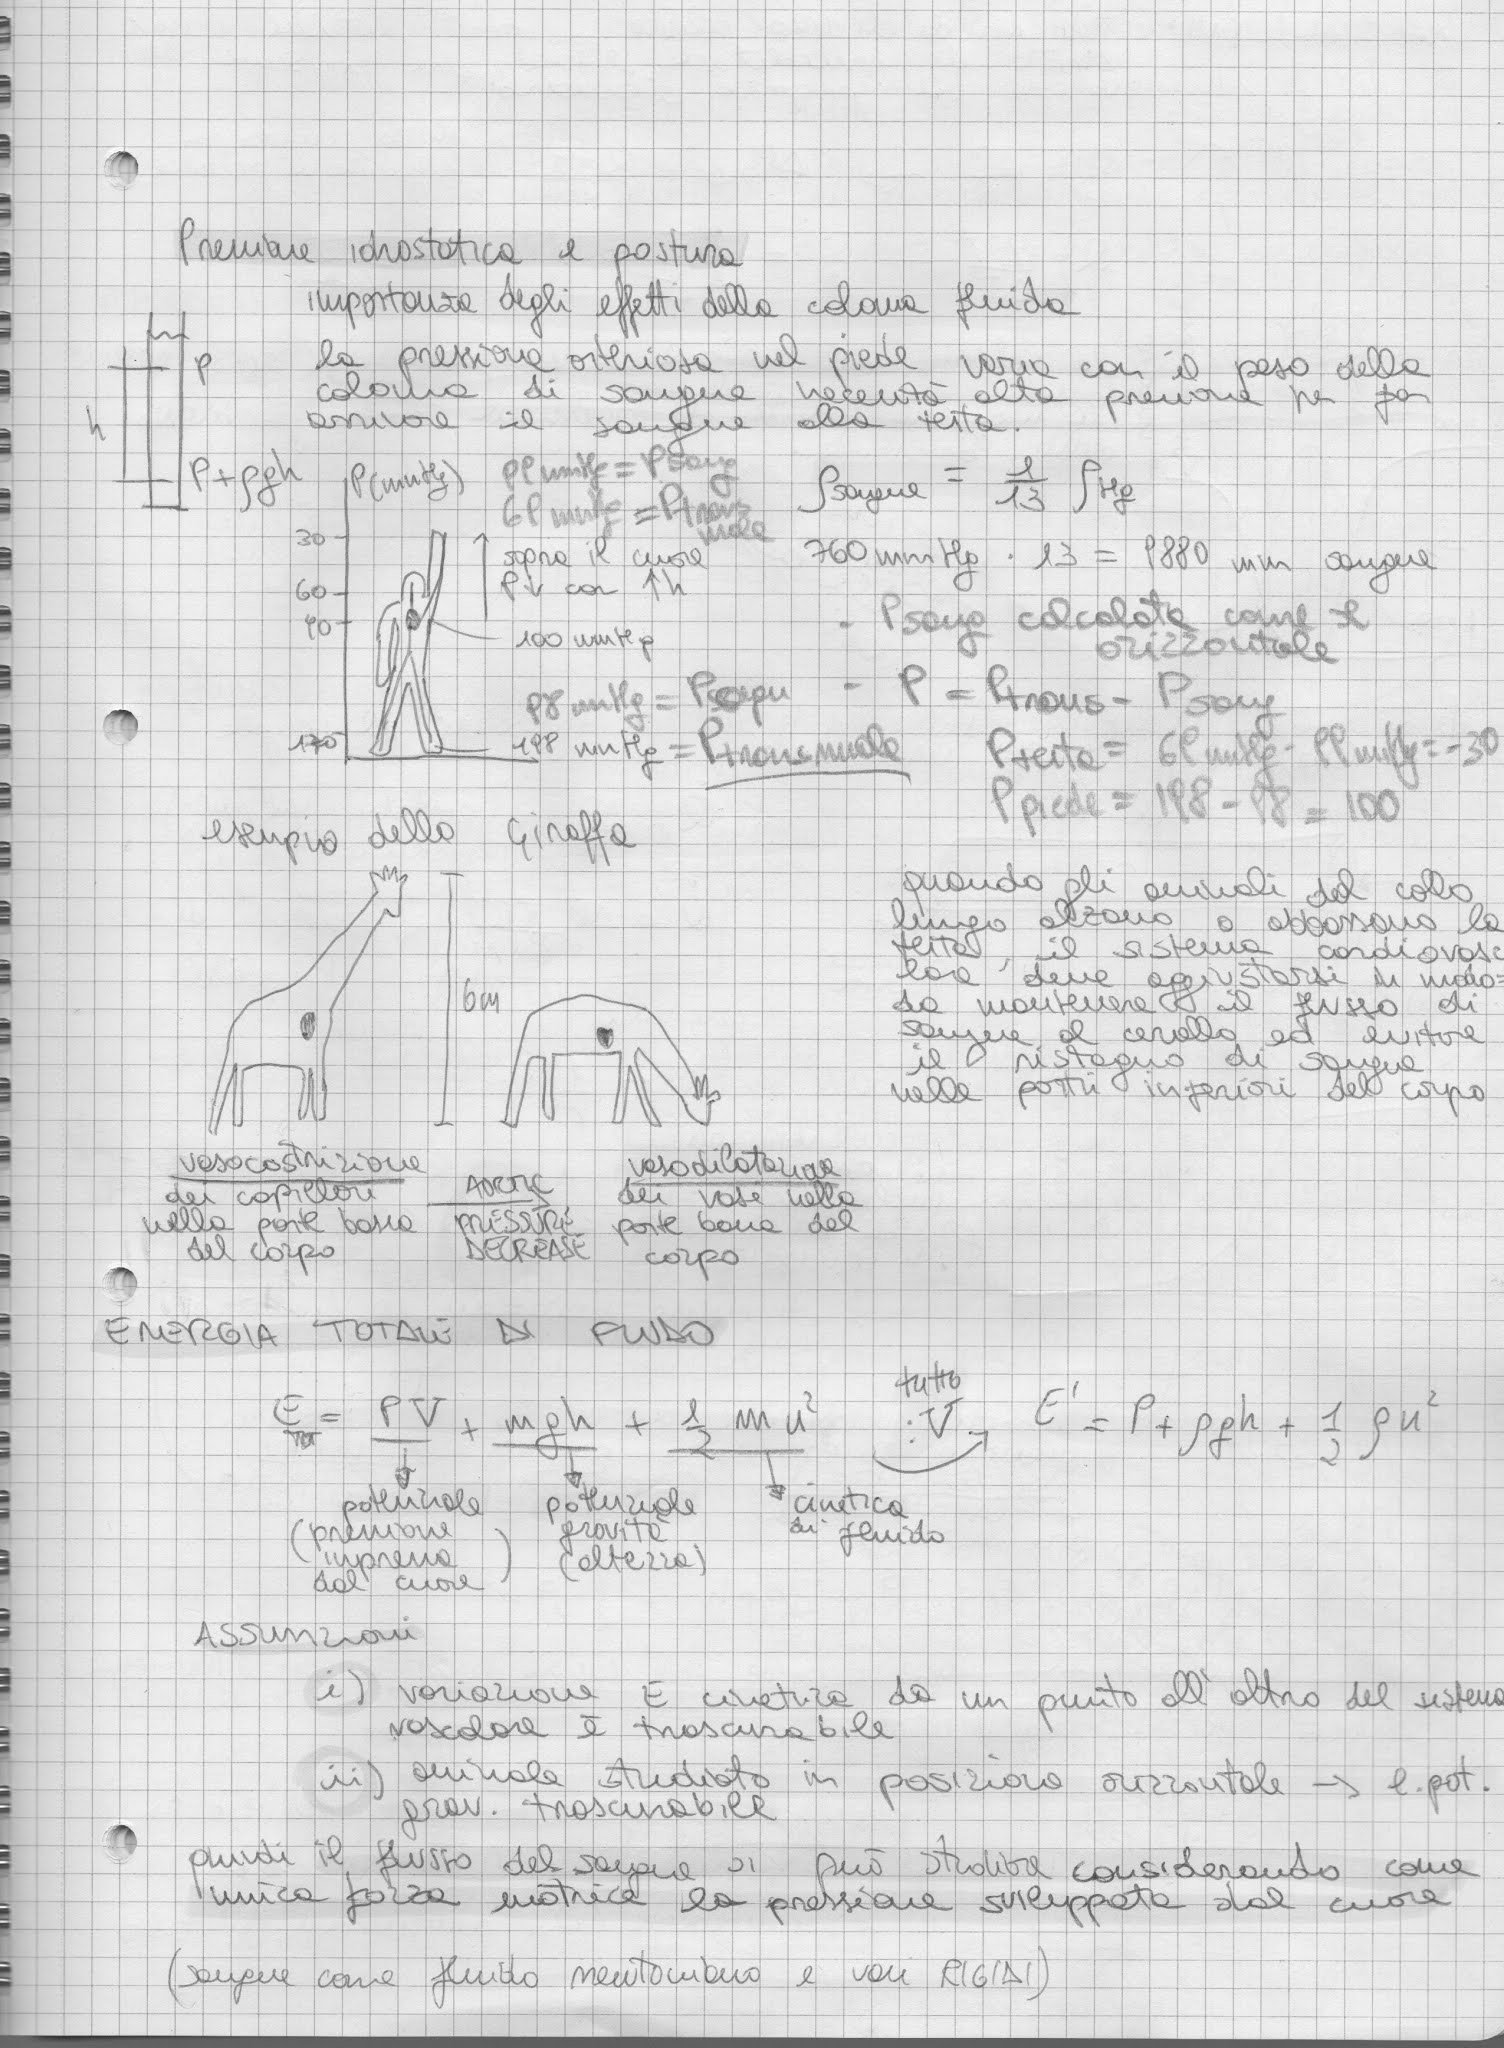 Pressione idrostatica e postura
importanza degli effetti della colonna fluida
la pressione arteriosa nel piede varia con il peso della
colonna di sangue necessità alta pressione per far
arrivare il sangue alla testa.
P
h
P+ρgh
P(mmHg)
99 mmHg = Psang
69 mmHg = Ptrans
murale
ρsangue = 1/13 ρHg
30
60
90
170
sopra il cuore
P↓ con ↑h
100 mmHg
760 mmHg · 13 = 9880 mm sangue
- Psang calcolata come se
orizzontale
98 mmHg = Psangu
- P = Ptrans - Psang
198 mmHg = Ptransmurale
Ptesta = 69 mmHg - 99 mmHg = -30
Ppiede = 198 - 98 = 100
esempio della Giraffa
6m
quando gli animali dal collo
lungo alzano o abbassano la
testa, il sistema cardiovasc
lare deve aggiustarsi in modo=
da mantenere il flusso di
sangue al cervello ed evitare
il ristagno di sangue
nelle parti inferiori del corpo
vasocostrizione
dei capillari
nella parte bassa
del corpo
AORTIC
PRESSURE
DECREASE
vasodilatazione
dei vasi nella
parte bassa del
corpo
ENERGIA TOTALE DI FLUIDO
E tot = PV + mgh + 1/2 m u²
tutto
:V
E' = P + ρgh + 1/2 ρu²
potenziale
(pressione
impressa
dal cuore)
potenziale
gravità
(altezza)
cinetica
di fluido
ASSUNZIONI
i) variazione E cinetica da un punto all'altro del sistema
vascolare è trascurabile
ii) animale studiato in posizione orizzontale → e.pot.
grav. trascurabile
quindi il flusso del sangue si può studiare considerando come
unica forza motrice la pressione sviluppata dal cuore
(sangue come fluido newtoniano e vasi RIGIDI)